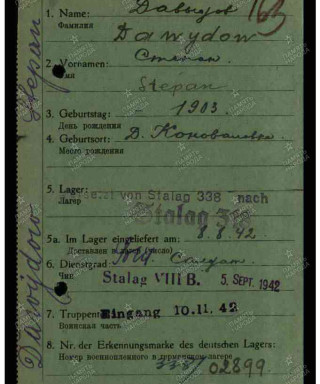 163
1. Name: Давыдов
Фамилия
Dawydow
2. Vornamen: Степан
Имя
Stepan
3. Geburtstag: - 1903
День рождения
4. Geburtsort: Д. Коноваловка
Место рождения
5. Lager: Versetzt von Stalag 338 nach
Лагерь
Stalag 318
5a. Im Lager eingeliefert am: 8.8.42
Доставлен в лагерь (число)
6. Dienstgrad: Солдат
Чин
Stalag VIII B. 5. SEP. 1942
7. Truppent Eingang 10.11.42
Воинская часть
8. Nr. der Erkennungsmarke des deutschen Lagers:
Номер военнопленного в германском лагере
338/ 02899
Dawydow Stepan